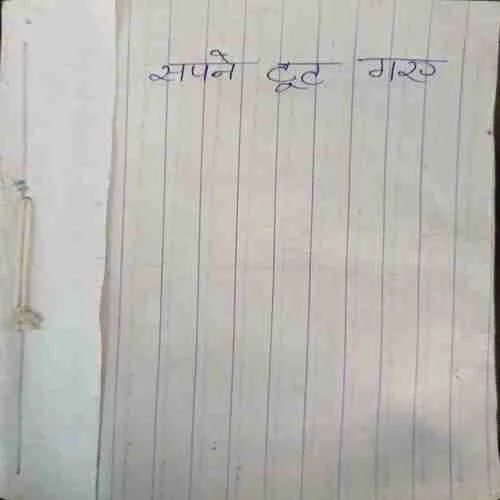 सपने टूट गए